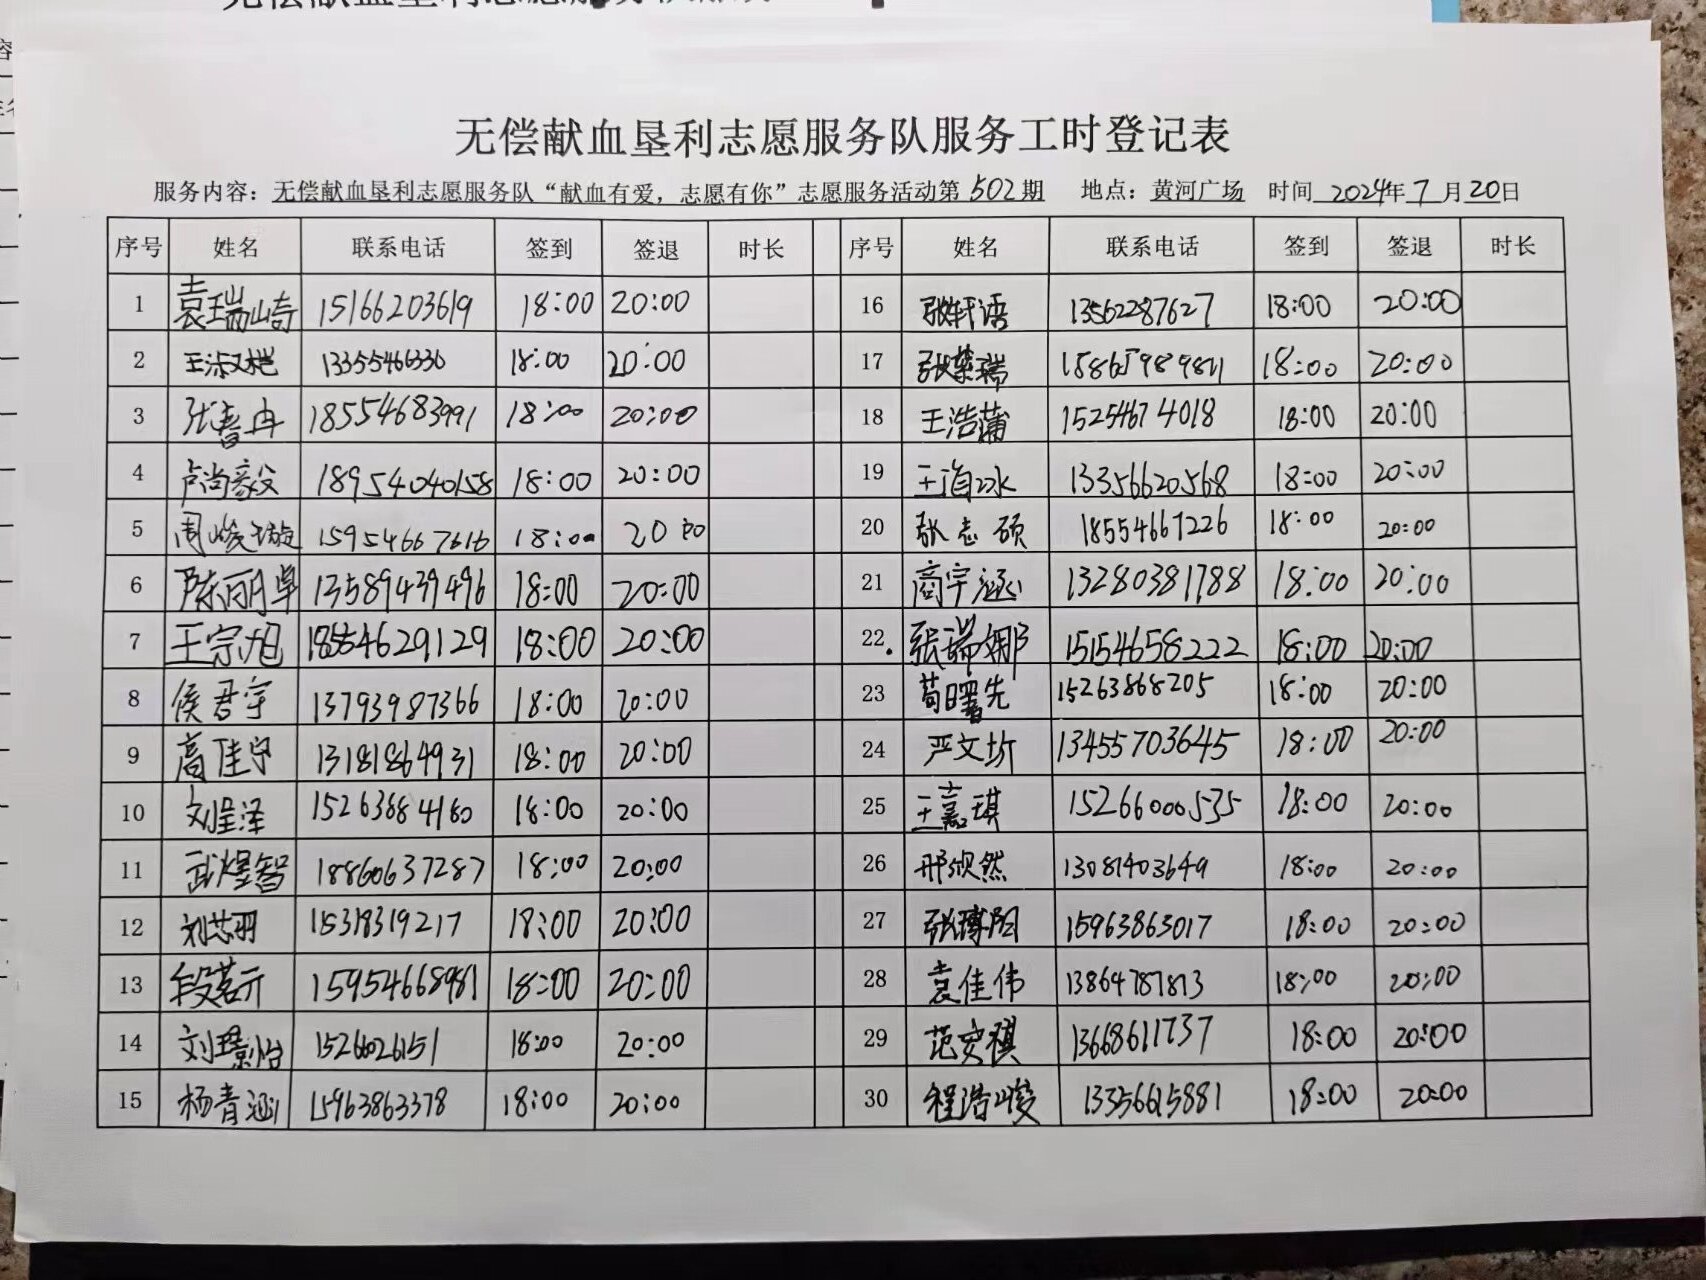 无偿献血垦利志愿服务队服务工时登记表
服务内容：无偿献血垦利志愿服务队“献血有爱，志愿有你”志愿服务活动第502期 地点：黄河广场 时间 2024年7月20日
序号 姓名 联系电话 签到 签退 时长 序号 姓名 联系电话 签到 签退 时长
1 袁瑞崎 15166203619 18:00 20:00 16 张轩语 13562287627 18:00 20:00
2 王淑桤 13355466330 18:00 20:00 17 张荣瑞 18865989821 18:00 20:00
3 张春冉 18554683991 18:00 20:00 18 王浩蒲 15254674018 18:00 20:00
4 卢尚毅 18954040158 18:00 20:00 19 王海冰 13356620568 18:00 20:00
5 周峻璇 15954667616 18:00 20:00 20 张志硕 18554667226 18:00 20:00
6 陈丽卓 13589439496 18:00 20:00 21 商宇涵 13280381788 18:00 20:00
7 王宗旭 18554629129 18:00 20:00 22. 张瑞娜 15154658222 18:00 20:00
8 侯君宇 13793987366 18:00 20:00 23 苟曙先 15263868205 18:00 20:00
9 高佳宁 13181864931 18:00 20:00 24 严文圻 13455703645 18:00 20:00
10 刘呈泽 15263884180 18:00 20:00 25 王嘉琪 15266000535 18:00 20:00
11 武煜智 18860637287 18:00 20:00 26 邢欣然 13081403649 18:00 20:00
12 刘芯羽 15318319217 18:00 20:00 27 张博阳 15963863017 18:00 20:00
13 段茗亓 15954668981 18:00 20:00 28 袁佳伟 13864787813 18:00 20:00
14 刘璟怡 15266026151 18:00 20:00 29 范安祺 13668611737 18:00 20:00
15 杨青涵 15963863378 18:00 20:00 30 程浩峻 13356615881 18:00 20:00